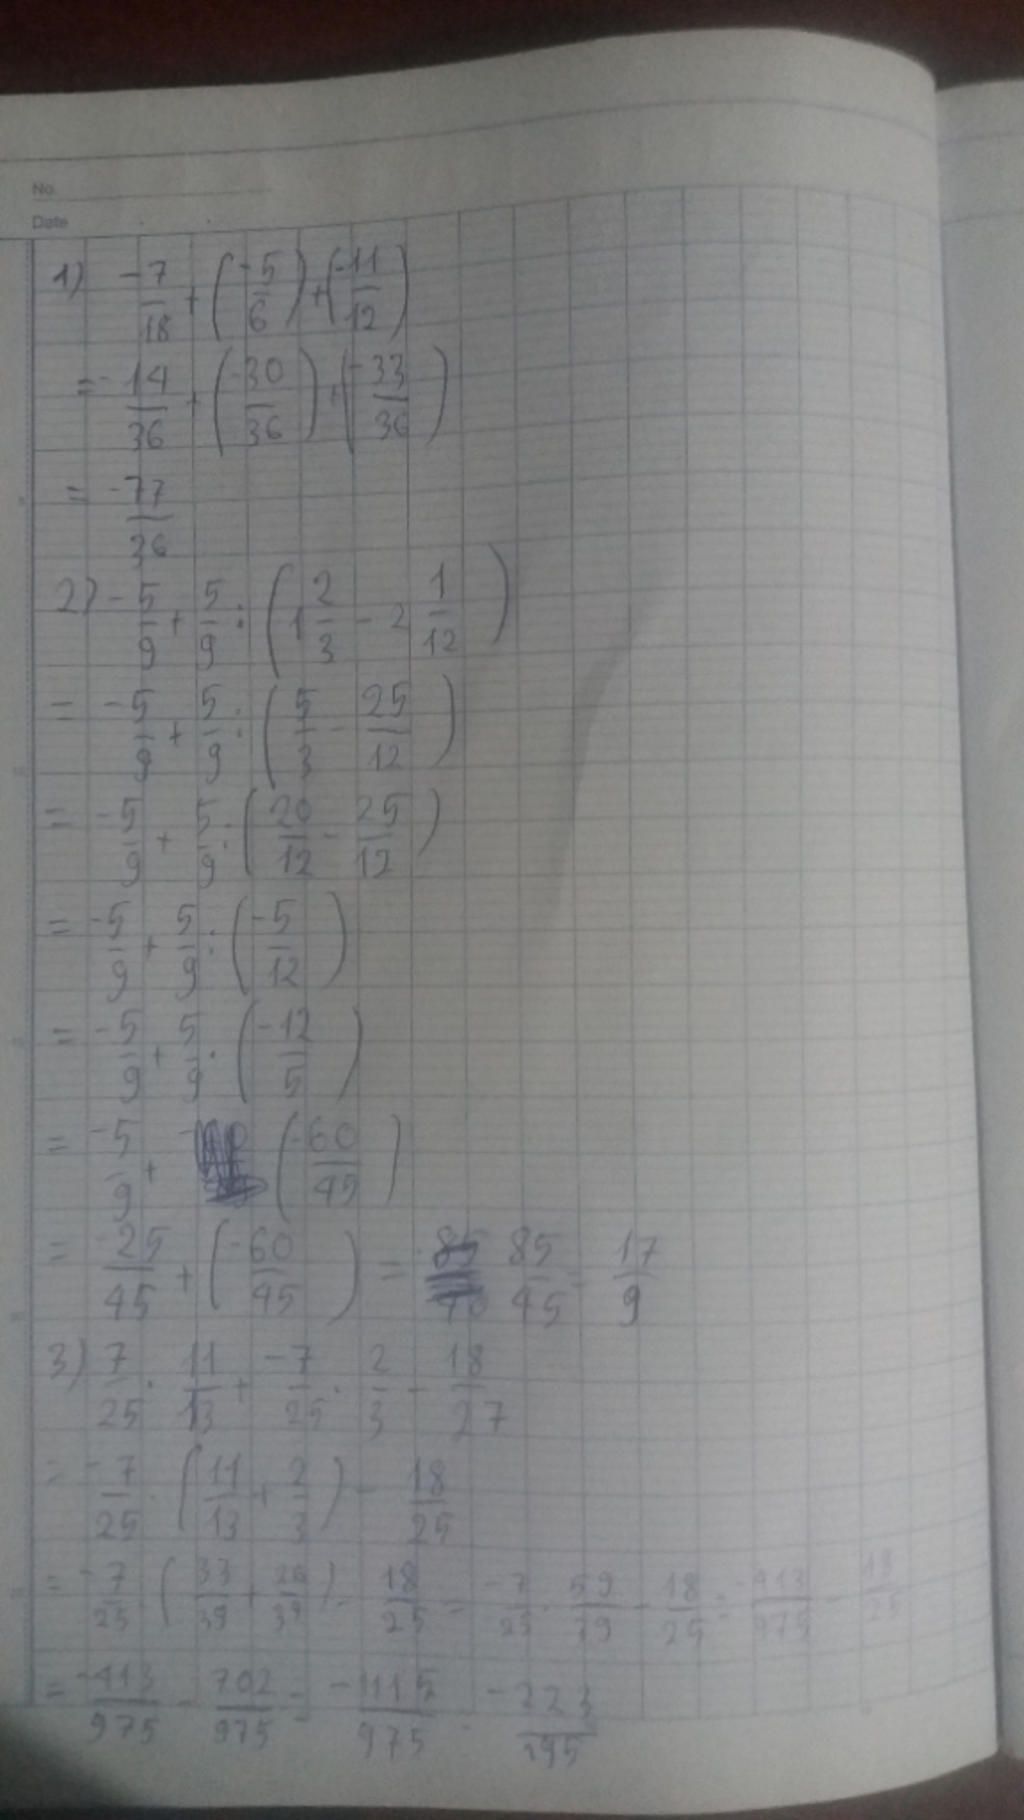 No.
Date
1) -7/18 + (-5/6) + (-11/12)
= -14/36 + (-30/36) + (-33/36)
= -77/36
2) -5/9 + 5/9 : (1 2/3 - 2 1/12)
= -5/9 + 5/9 : (5/3 - 25/12)
= -5/9 + 5/9 : (20/12 - 25/12)
= -5/9 + 5/9 : (-5/12)
= -5/9 + 5/9 . (-12/5)
= -5/9 + (-60/45)
= -25/45 + (-60/45) = 85/45 = 17/9
3) 7/25 . 11/13 + -7/25 . 2/3 - 18/27
= -7/25 . (11/13 + 2/3) - 18/25
= -7/25 . (33/39 + 26/39) - 18/25 = -7/25 . 59/39 - 18/25 = -413/975 - 18/25
= -413/975 - 702/975 = -1115/975 = -223/195